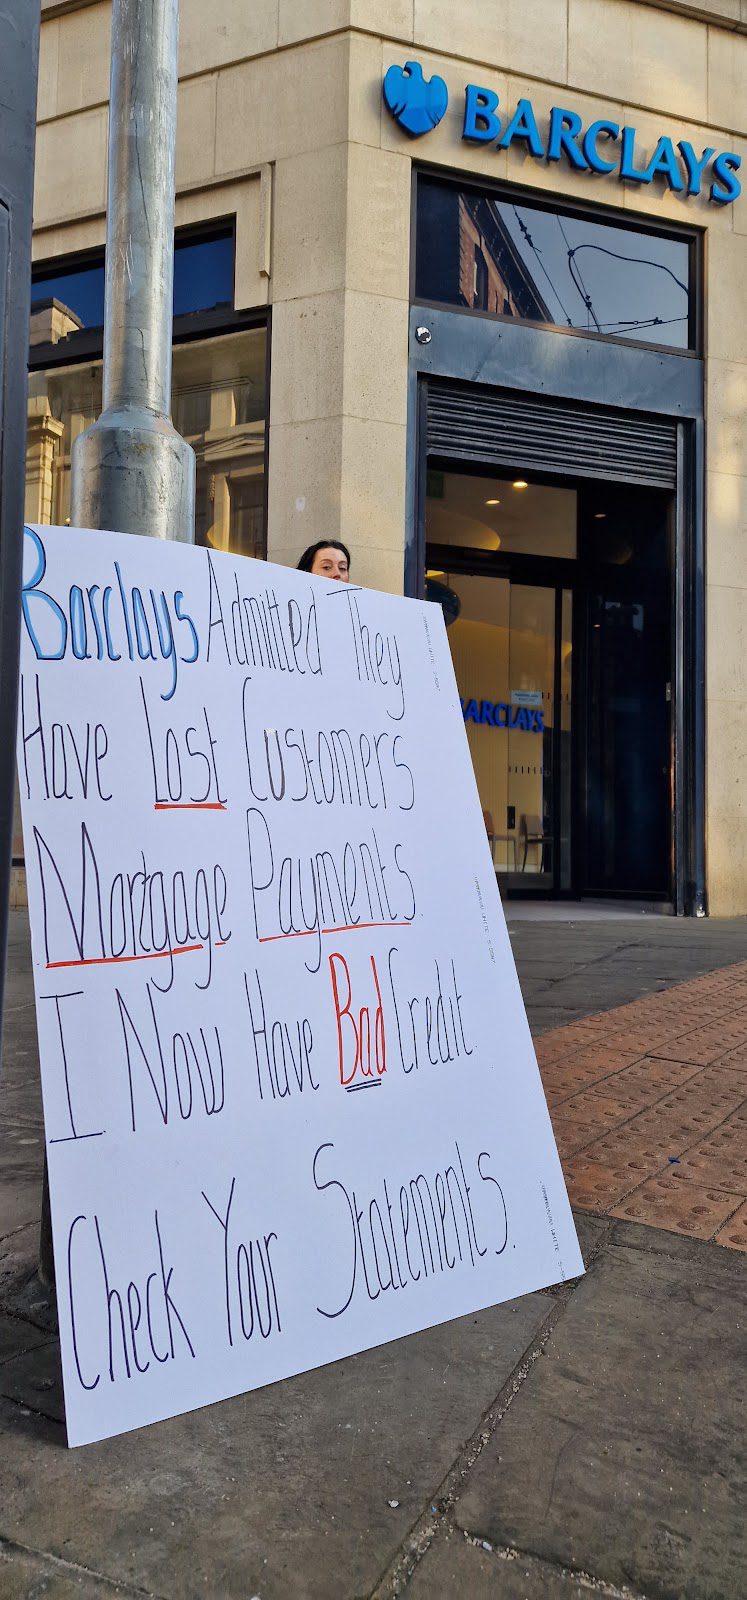 BARCLAYS
BARCLAYS
Barclays Admitted They
Have Lost Customers
Mortgage Payments.
I Now Have Bad Credit.
Check Your Statements.